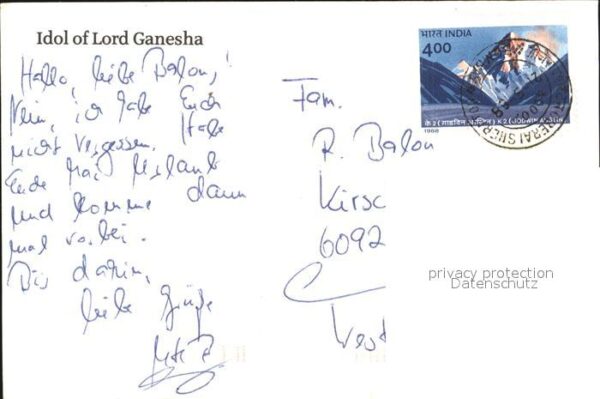 Idol of Lord Ganesha
Hallo, liebe Balons!
Nein, ich habe Euch
nicht vergessen. Habe
Ende Mai Urlaub
und komme dann
mal vorbei.
Bis dahin,
liebe Grüße
Fam.
R. Balon
Kirsc
6092
West
भारत INDIA
4.00
के 2 (गाडविन आस्टिन) K 2 (GODWIN AUSTIN)
1988
privacy protection
Datenschutz